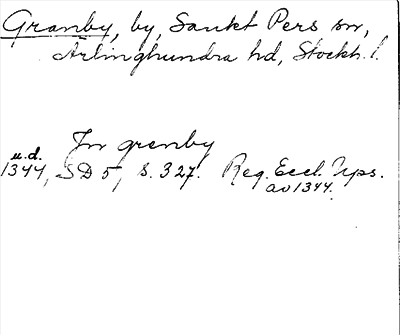 Granby, by, Sankt Pers sn,
Ärlinghundra hd, Stockh. l.
In granby
u.d.
1344, SD 5, s. 327. Reg. Eccl. Ups.
av 1344.